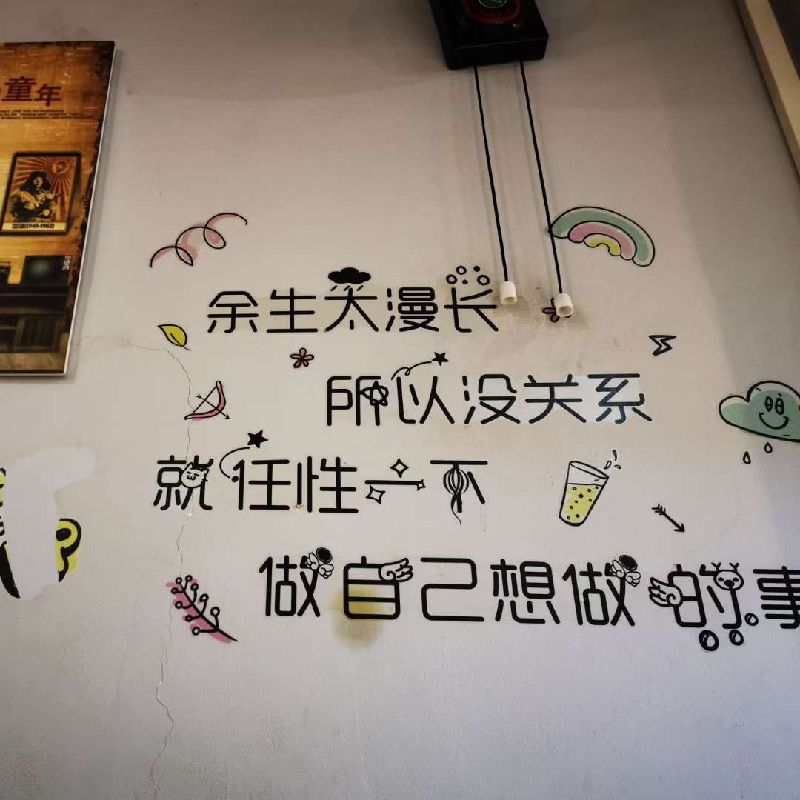 童年
余生太漫长
所以没关系
就任性一下
做自己想做的事